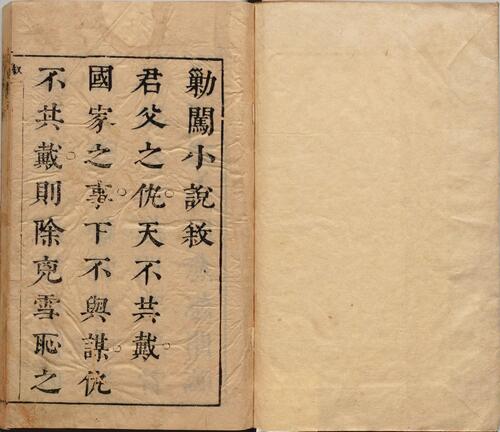 勦闖小說敘
君父之仇天不共戴
國家之事下不與謀仇
不共戴則除兇雪恥之